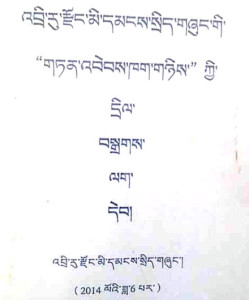 འབྲི་རུ་རྫོང་མི་དམངས་སྲིད་གཞུང་གི་
“གཏན་འབེབས་ཁག་གཉིས་” ཀྱི་
དྲིལ་
བསྒྲགས་
ལག་
དེབ།
འབྲི་རུ་རྫོང་མི་དམངས་སྲིད་གཞུང་།
(2014 ལོའི་ཟླ་6 པར་)